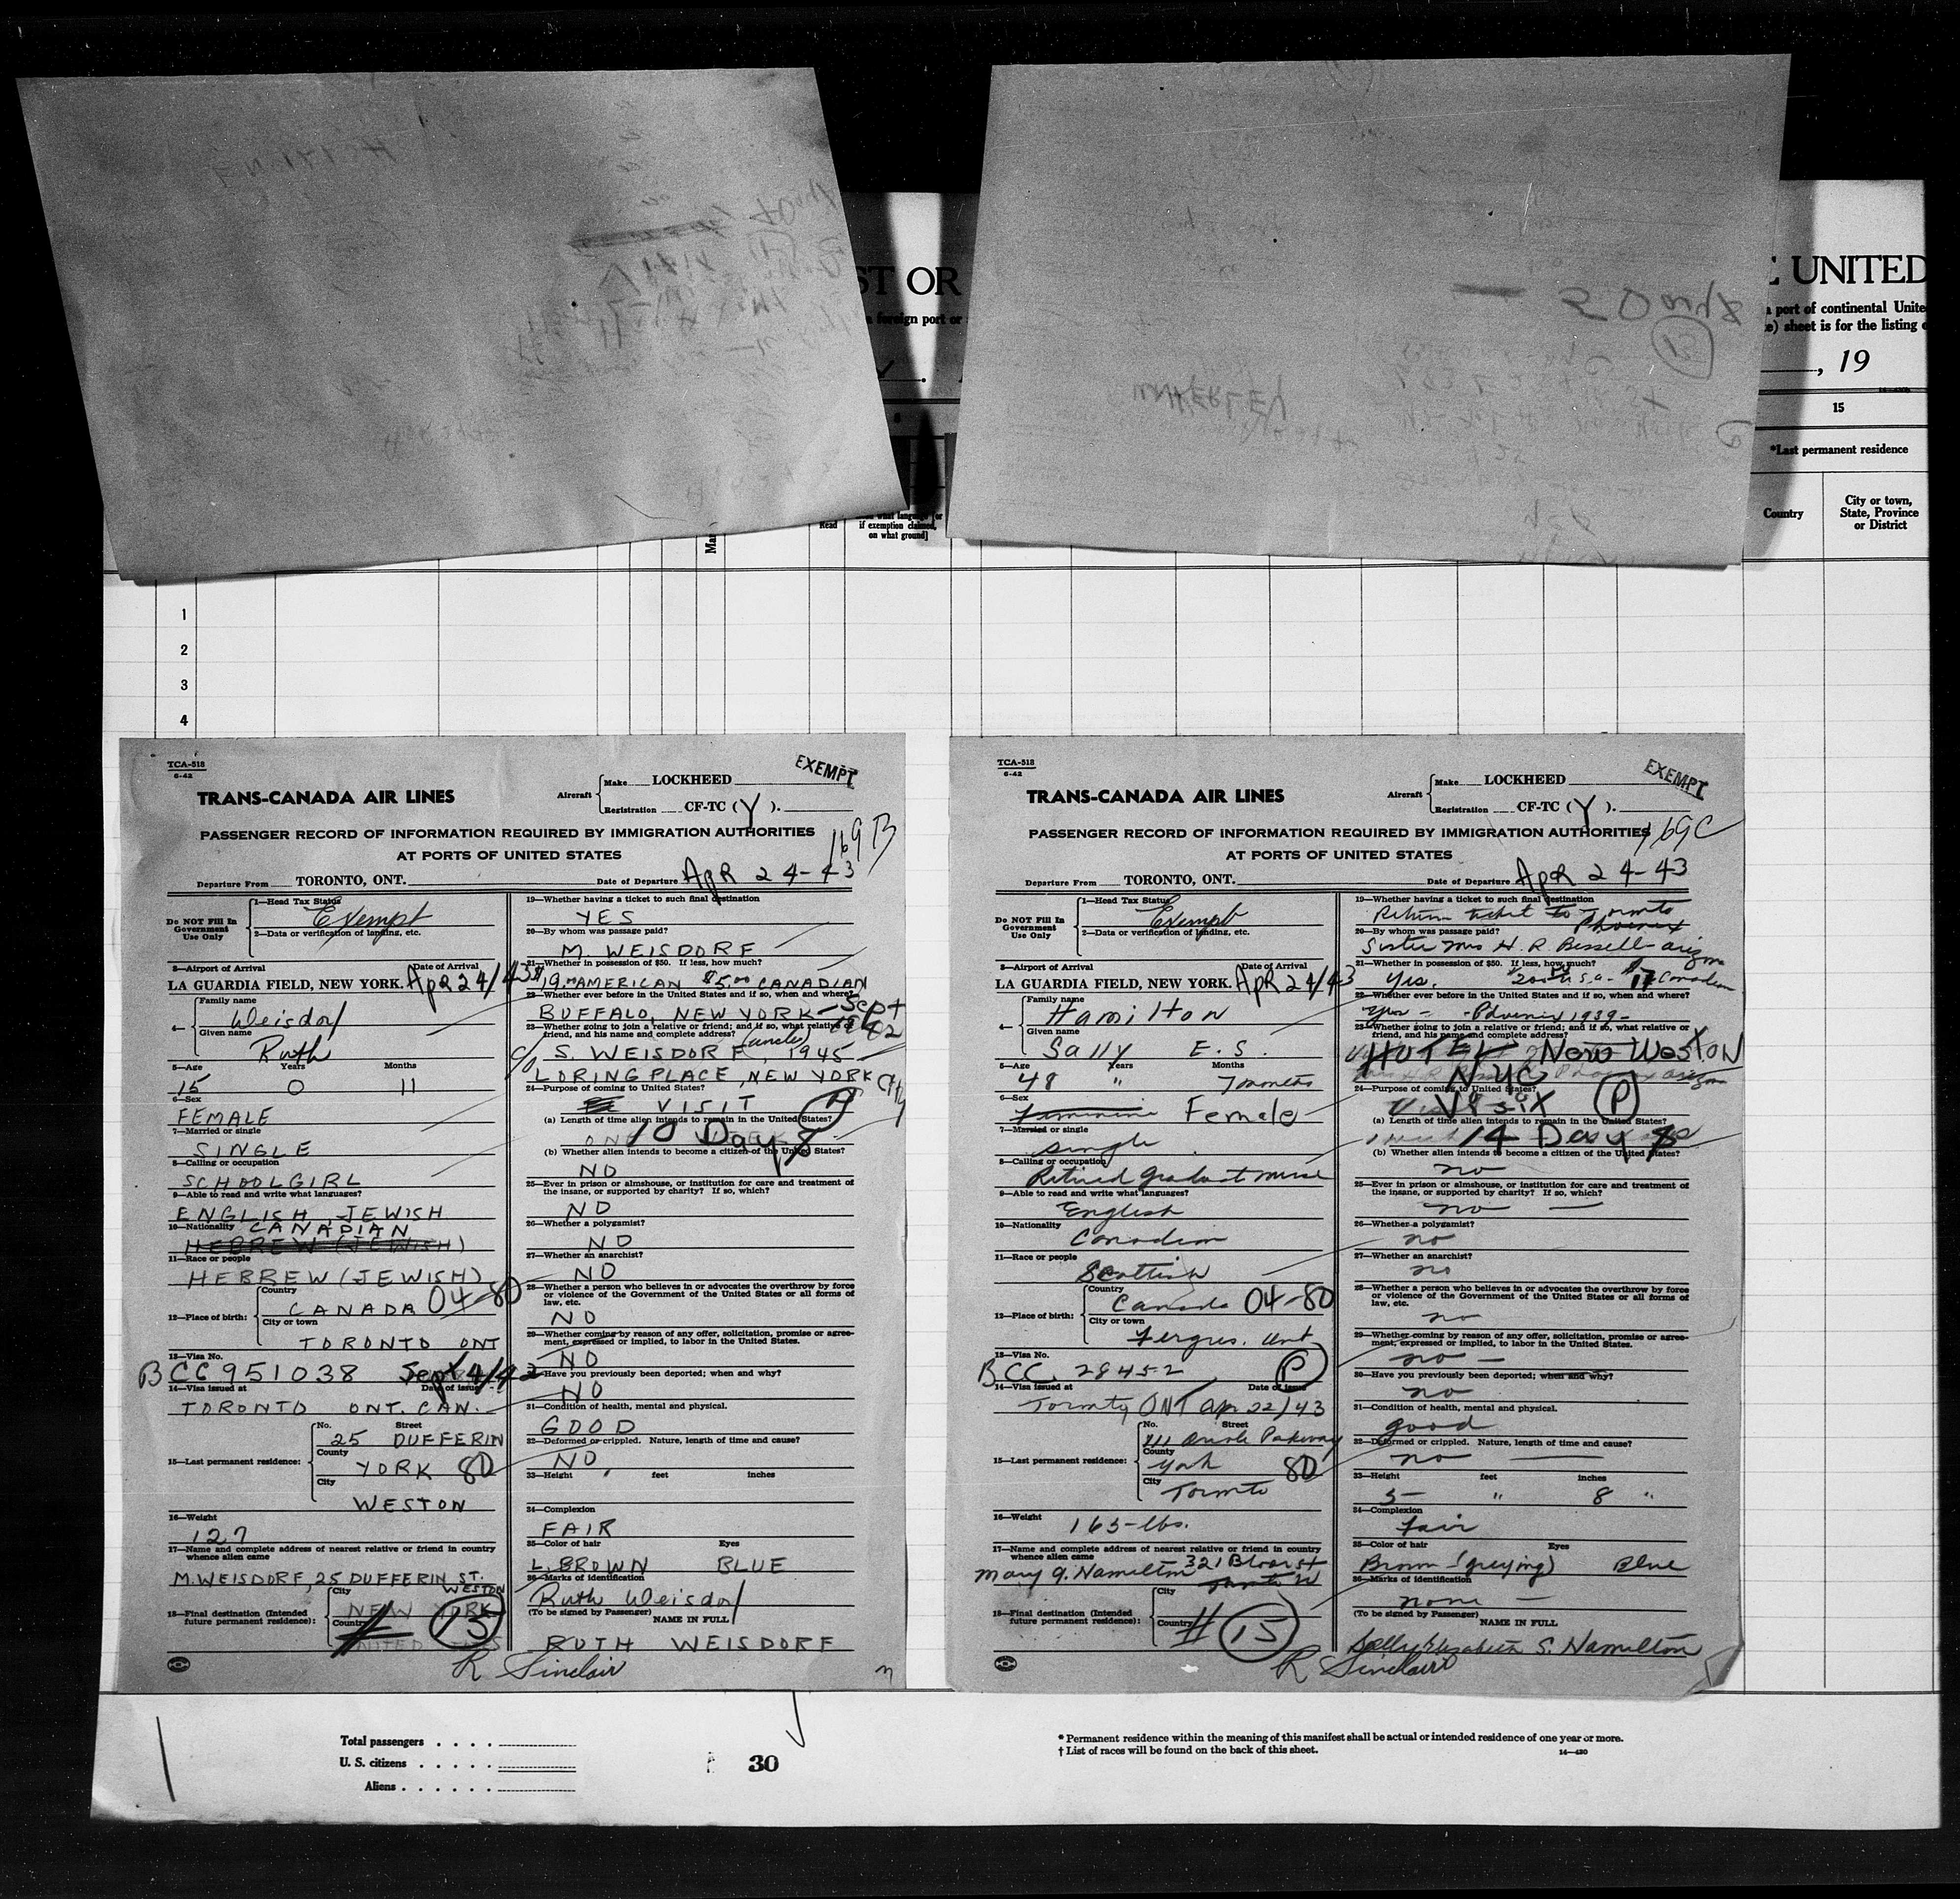 ST OR
E UNITED
a foreign port or
a port of continental Unite
e) sheet is for the listing o
, 19
15
*Last permanent residence
Read
if exemption claimed,
on what ground]
Country
City or town,
State, Province
or District
1
2
3
4
TCA-518
6-42
EXEMPT
TRANS-CANADA AIR LINES
Aircraft
Make LOCKHEED
Registration CF-TC (Y).
PASSENGER RECORD OF INFORMATION REQUIRED BY IMMIGRATION AUTHORITIES
169 B
AT PORTS OF UNITED STATES
Departure From TORONTO, ONT. Date of Departure APR 24-43
Do NOT Fill In
Government
Use Only
1—Head Tax Status
Exempt
2—Data or verification of landing, etc.
3—Airport of Arrival Date of Arrival
LA GUARDIA FIELD, NEW YORK. Apr 24/43
4— Family name
Weisdorf
Given name
Ruth
5—Age Years Months
15 0 11
6—Sex
FEMALE
7—Married or single
SINGLE
8—Calling or occupation
SCHOOLGIRL
9—Able to read and write what languages?
ENGLISH JEWISH
10—Nationality CANADIAN
HEBREW (JEWISH)
11—Race or people
HEBREW (JEWISH)
12—Place of birth:
Country
CANADA 04-80
City or town
TORONTO ONT
13—Visa No.
BCC 951038 Sept 4/42
14—Visa issued at Date of issue
TORONTO ONT. CAN.
15—Last permanent residence:
No. Street
25 DUFFERIN
County
YORK 80
City
WESTON
16—Weight
127
17—Name and complete address of nearest relative or friend in country
whence alien came
M. WEISDORF, 25 DUFFERIN ST.
WESTON
18—Final destination (Intended
future permanent residence):
City
NEW YORK
Country
# 15
19—Whether having a ticket to such final destination
YES
20—By whom was passage paid?
M. WEISDORF
21—Whether in possession of $50. If less, how much?
$19.00 AMERICAN $5.00 CANADIAN
22—Whether ever before in the United States and if so, when and where?
BUFFALO, NEW YORK - Sept
23—Whether going to join a relative or friend; and if so, what relative or
friend, and his name and complete address?
(uncle)
c/o S. WEISDORF, 1945
LORING PLACE, NEW YORK City
24—Purpose of coming to United States?
VISIT
(a) Length of time alien intends to remain in the United States?
10 Days
(b) Whether alien intends to become a citizen of the United States?
NO
25—Ever in prison or almshouse, or institution for care and treatment of
the insane, or supported by charity? If so, which?
NO
26—Whether a polygamist?
NO
27—Whether an anarchist?
NO
28—Whether a person who believes in or advocates the overthrow by force
or violence of the Government of the United States or all forms of
law, etc.
NO
29—Whether coming by reason of any offer, solicitation, promise or agree-
ment, expressed or implied, to labor in the United States.
NO
30—Have you previously been deported; when and why?
NO
31—Condition of health, mental and physical.
GOOD
32—Deformed or crippled. Nature, length of time and cause?
NO
33—Height feet inches
34—Complexion
FAIR
35—Color of hair Eyes
L. BROWN BLUE
36—Marks of identification
Ruth Weisdorf
(To be signed by Passenger) NAME IN FULL
RUTH WEISDORF
R Sinclair
TCA-518
6-42
EXEMPT
TRANS-CANADA AIR LINES
Aircraft
Make LOCKHEED
Registration CF-TC (Y).
PASSENGER RECORD OF INFORMATION REQUIRED BY IMMIGRATION AUTHORITIES
169C
AT PORTS OF UNITED STATES
Departure From TORONTO, ONT. Date of Departure APR 24-43
Do NOT Fill In
Government
Use Only
1—Head Tax Status
Exempt
2—Data or verification of landing, etc.
3—Airport of Arrival Date of Arrival
LA GUARDIA FIELD, NEW YORK. Apr 24/43
4— Family name
Hamilton
Given name
Sally E. S.
5—Age Years Months
48 " 7 months
6—Sex
Feminine Female
7—Married or single
Single
8—Calling or occupation
Retired graduate nurse
9—Able to read and write what languages?
English
10—Nationality
Canadian
11—Race or people
Scottish
12—Place of birth:
Country
Canada 04-80
City or town
Fergus. Ont
13—Visa No.
BCC 28452 P
14—Visa issued at Date of issue
Toronto ONT Apr 22/43
15—Last permanent residence:
No. Street
111 Oriole Parkway
County
York 80
City
Toronto
16—Weight
165-lbs.
17—Name and complete address of nearest relative or friend in country
whence alien came
Mary A. Hamilton 321 Bloor st
Toronto W
18—Final destination (Intended
future permanent residence):
City
Country
# 15
19—Whether having a ticket to such final destination
Return ticket to Toronto
Phoenix
20—By whom was passage paid?
Sister Mrs H. R. Bissell Arizona
21—Whether in possession of $50. If less, how much?
Yes. $17 Canadian
22—Whether ever before in the United States and if so, when and where?
Yes - Phoenix 1939-
23—Whether going to join a relative or friend; and if so, what relative or
friend, and his name and complete address?
HOTEL New Weston
NYC
24—Purpose of coming to United States?
Visit P
(a) Length of time alien intends to remain in the United States?
14 Days
(b) Whether alien intends to become a citizen of the United States?
no
25—Ever in prison or almshouse, or institution for care and treatment of
the insane, or supported by charity? If so, which?
no
26—Whether a polygamist?
no
27—Whether an anarchist?
no
28—Whether a person who believes in or advocates the overthrow by force
or violence of the Government of the United States or all forms of
law, etc.
no
29—Whether coming by reason of any offer, solicitation, promise or agree-
ment, expressed or implied, to labor in the United States.
no -
30—Have you previously been deported; when and why?
no
31—Condition of health, mental and physical.
good
32—Deformed or crippled. Nature, length of time and cause?
no
33—Height feet inches
5 " 8 "
34—Complexion
Fair
35—Color of hair Eyes
Brown (greying) Blue
36—Marks of identification
none -
(To be signed by Passenger) NAME IN FULL
Sally Elizabeth S. Hamilton
R Sinclair
Total passengers . . . .
U. S. citizens . . . . .
Aliens . . . . . .
30
* Permanent residence within the meaning of this manifest shall be actual or intended residence of one year or more.
† List of races will be found on the back of this sheet.
14—420